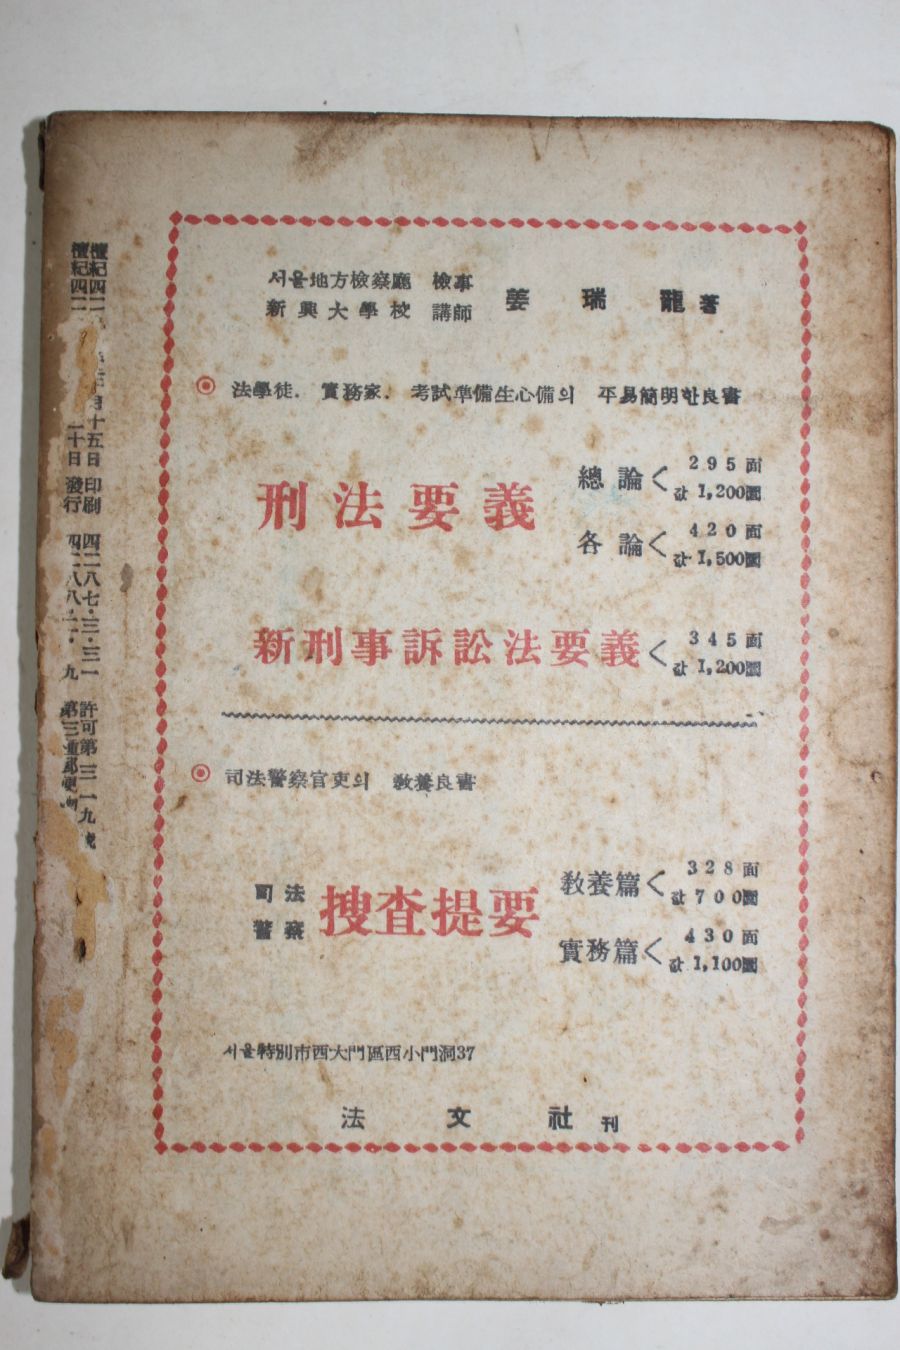 서울地方檢察廳 檢事
新興大學校 講師
姜瑞龍 著
◉ 法學徒. 實務家. 考試準備生必備의 平易簡明한良書
刑法要義
總論< 295面
값 1,200圜
各論< 420面
값 1,500圜
新刑事訴訟法要義< 345面
값 1,200圜
◉ 司法警察官吏의 敎養良書
司法
警察
搜査提要
敎養篇< 328面
값 700圜
實務篇< 430面
값 1,100圜
서울特別市西大門區西小門洞37
法文社 刊
檀紀四二 月十五日 印刷 四二八七·三·三一 許可第三一九號
檀紀四二 二十日 發行 四二八八·一·九 第三種郵便